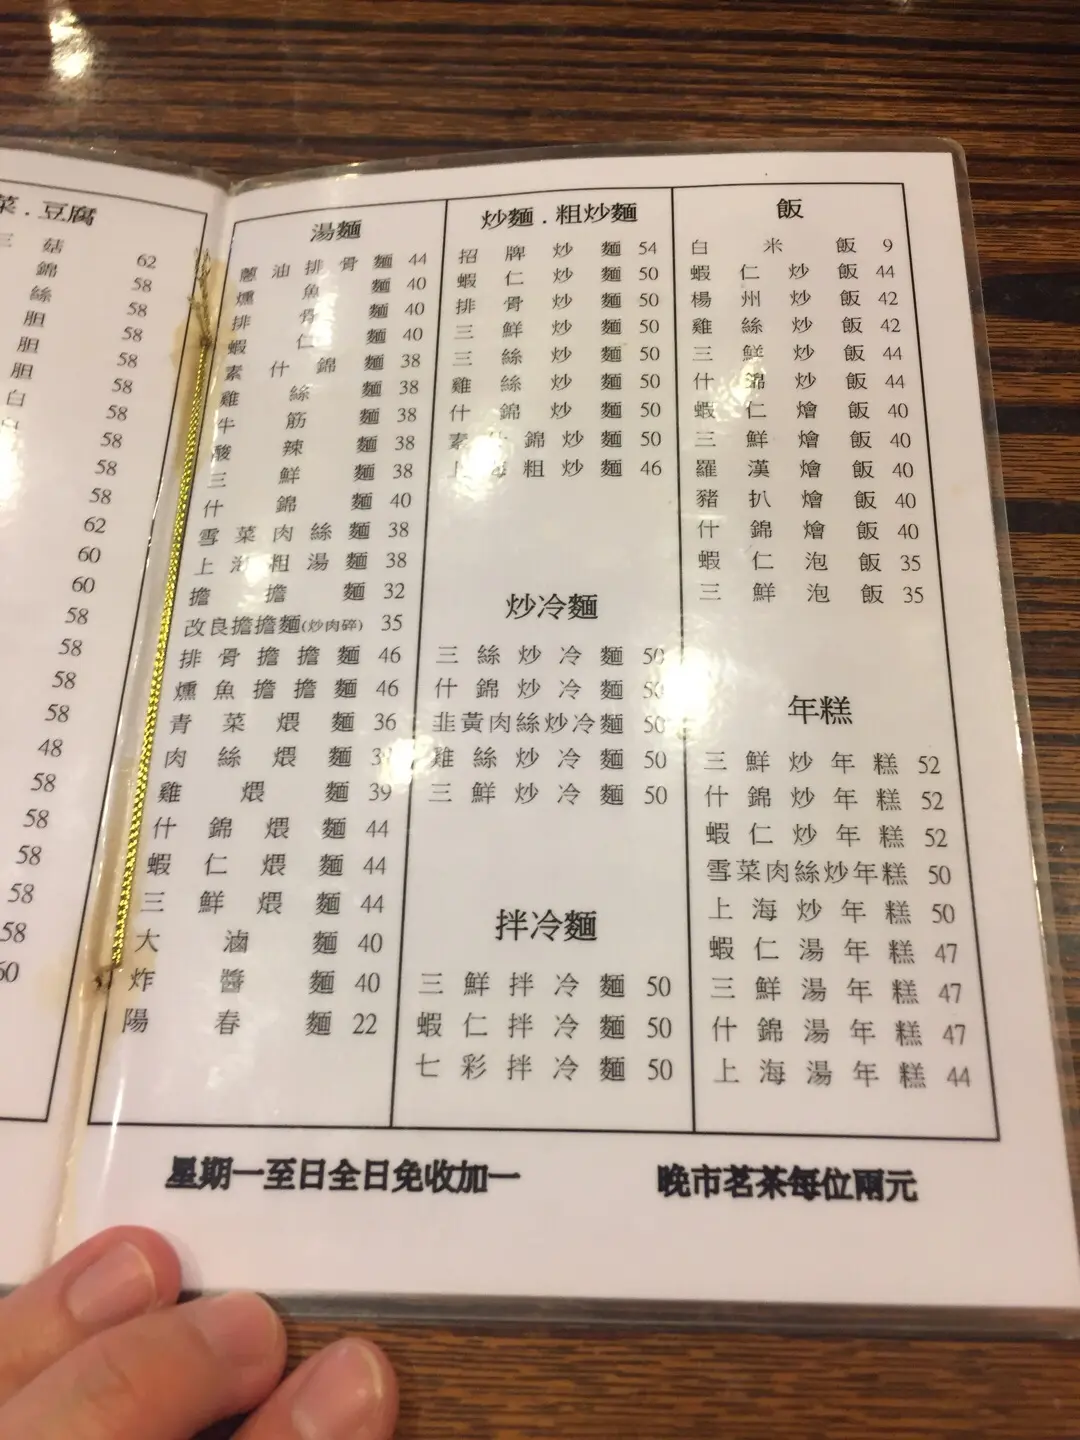 菜．豆腐
菇 62
錦 58
絲 58
胆 58
胆 58
胆 58
白 58
58
58
58
62
60
60
58
58
58
58
48
58
58
58
58
58
60
湯麵
蔥油排骨麵 44
燻魚麵 40
排骨麵 40
蝦仁麵 40
素什錦麵 38
雞絲麵 38
牛筋麵 38
酸辣麵 38
三鮮麵 38
什錦麵 40
雪菜肉絲麵 38
上海粗湯麵 38
擔擔麵 32
改良擔擔麵(炒肉碎) 35
排骨擔擔麵 46
燻魚擔擔麵 46
青菜煨麵 36
肉絲煨麵
雞煨麵 39
什錦煨麵 44
蝦仁煨麵 44
三鮮煨麵 44
大滷麵 40
炸醬麵 40
陽春麵 22
炒麵．粗炒麵
招牌炒麵 54
蝦仁炒麵 50
排骨炒麵 50
三鮮炒麵 50
三絲炒麵 50
雞絲炒麵 50
什錦炒麵 50
素什錦炒麵 50
上海粗炒麵 46
炒冷麵
三絲炒冷麵 50
什錦炒冷麵 50
韭黃肉絲炒冷麵 50
雞絲炒冷麵 50
三鮮炒冷麵 50
拌冷麵
三鮮拌冷麵 50
蝦仁拌冷麵 50
七彩拌冷麵 50
飯
白米飯 9
蝦仁炒飯 44
楊州炒飯 42
雞絲炒飯 42
三鮮炒飯 44
什錦炒飯 44
蝦仁燴飯 40
三鮮燴飯 40
羅漢燴飯 40
豬扒燴飯 40
什錦燴飯 40
蝦仁泡飯 35
三鮮泡飯 35
年糕
三鮮炒年糕 52
什錦炒年糕 52
蝦仁炒年糕 52
雪菜肉絲炒年糕 50
上海炒年糕 50
蝦仁湯年糕 47
三鮮湯年糕 47
什錦湯年糕 47
上海湯年糕 44
星期一至日全日免收加一
晚市茗茶每位兩元